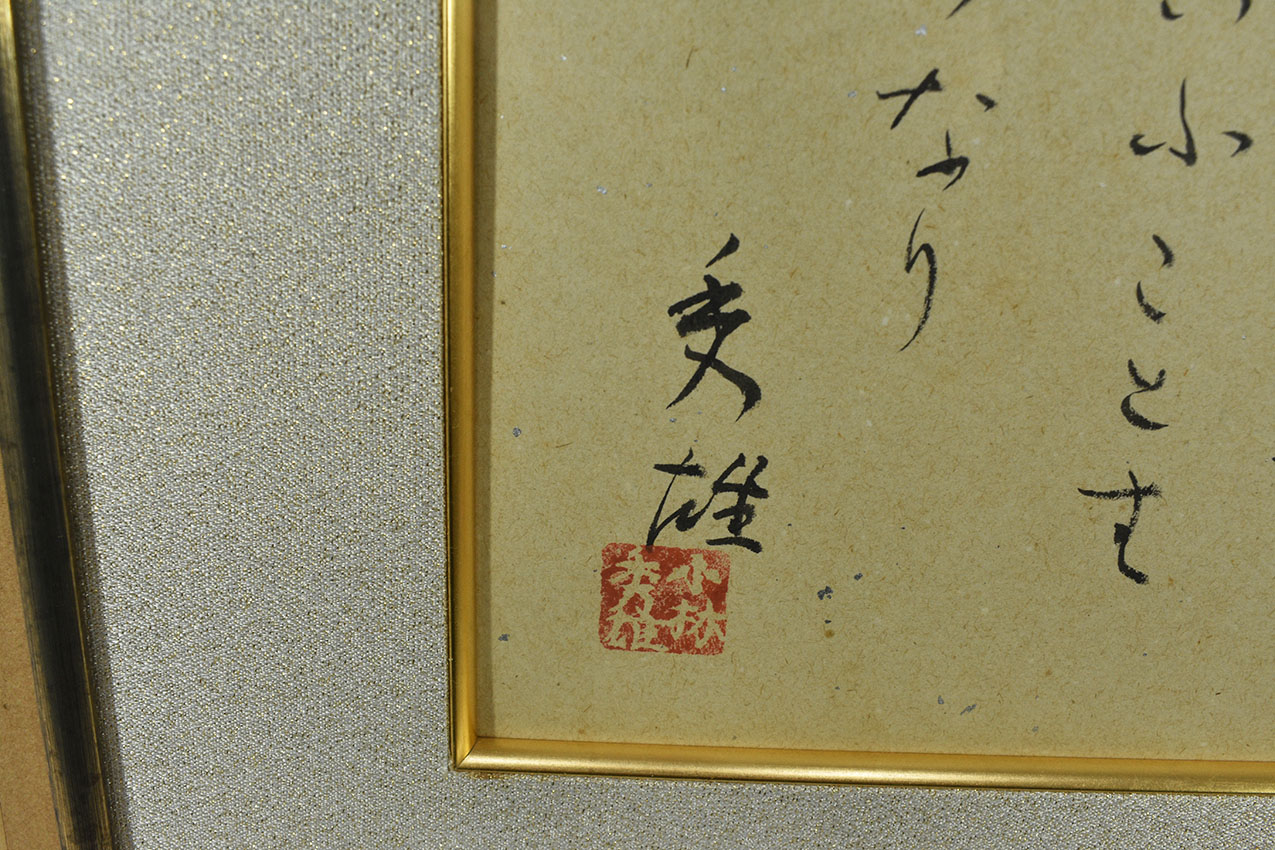 ふこと
なり
秀雄
小松
秀雄